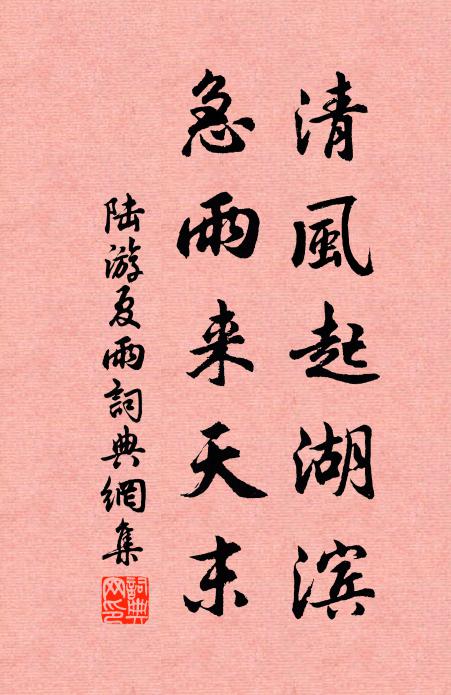 清風起湖滨
急雨来天末
陆游夏雨詞典網集
詞典网印